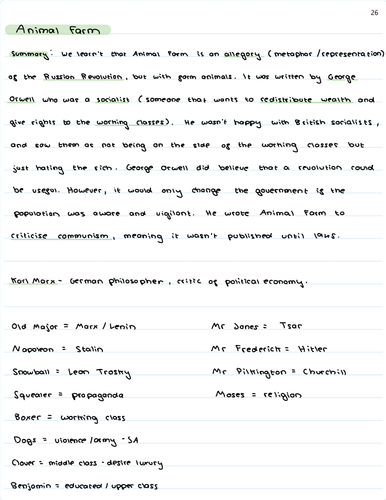 26
Animal Farm
Summary: We learn't that Animal Farm is an allegory (metaphor/representation)
of the Russian Revolution, but with farm animals. It was written by George
Orwell who was a socialist (someone that wants to redistribute wealth and
give rights to the working classes). He wasn't happy with British socialists,
and saw them as not being on the side of the working classes but
just hating the rich. George Orwell did believe that a revolution could
be useful. However, it would only change the government if the
population was aware and vigilant. He wrote Animal Farm to
criticise communism, meaning it wasn't published until 1945.
Karl Marx - German philosopher, critic of political economy.
Old Major = Marx / Lenin
Mr Jones = Tsar
Napoleon = Stalin
Mr Frederich = Hitler
Snowball = Leon Trosky
Mr Pilkington = Churchill
Squealer = propaganda
Moses = religion
Boxer = working class
Dogs = violence/army - SA
Clover = middle class - desire luxury
Benjamin = educated/upper class